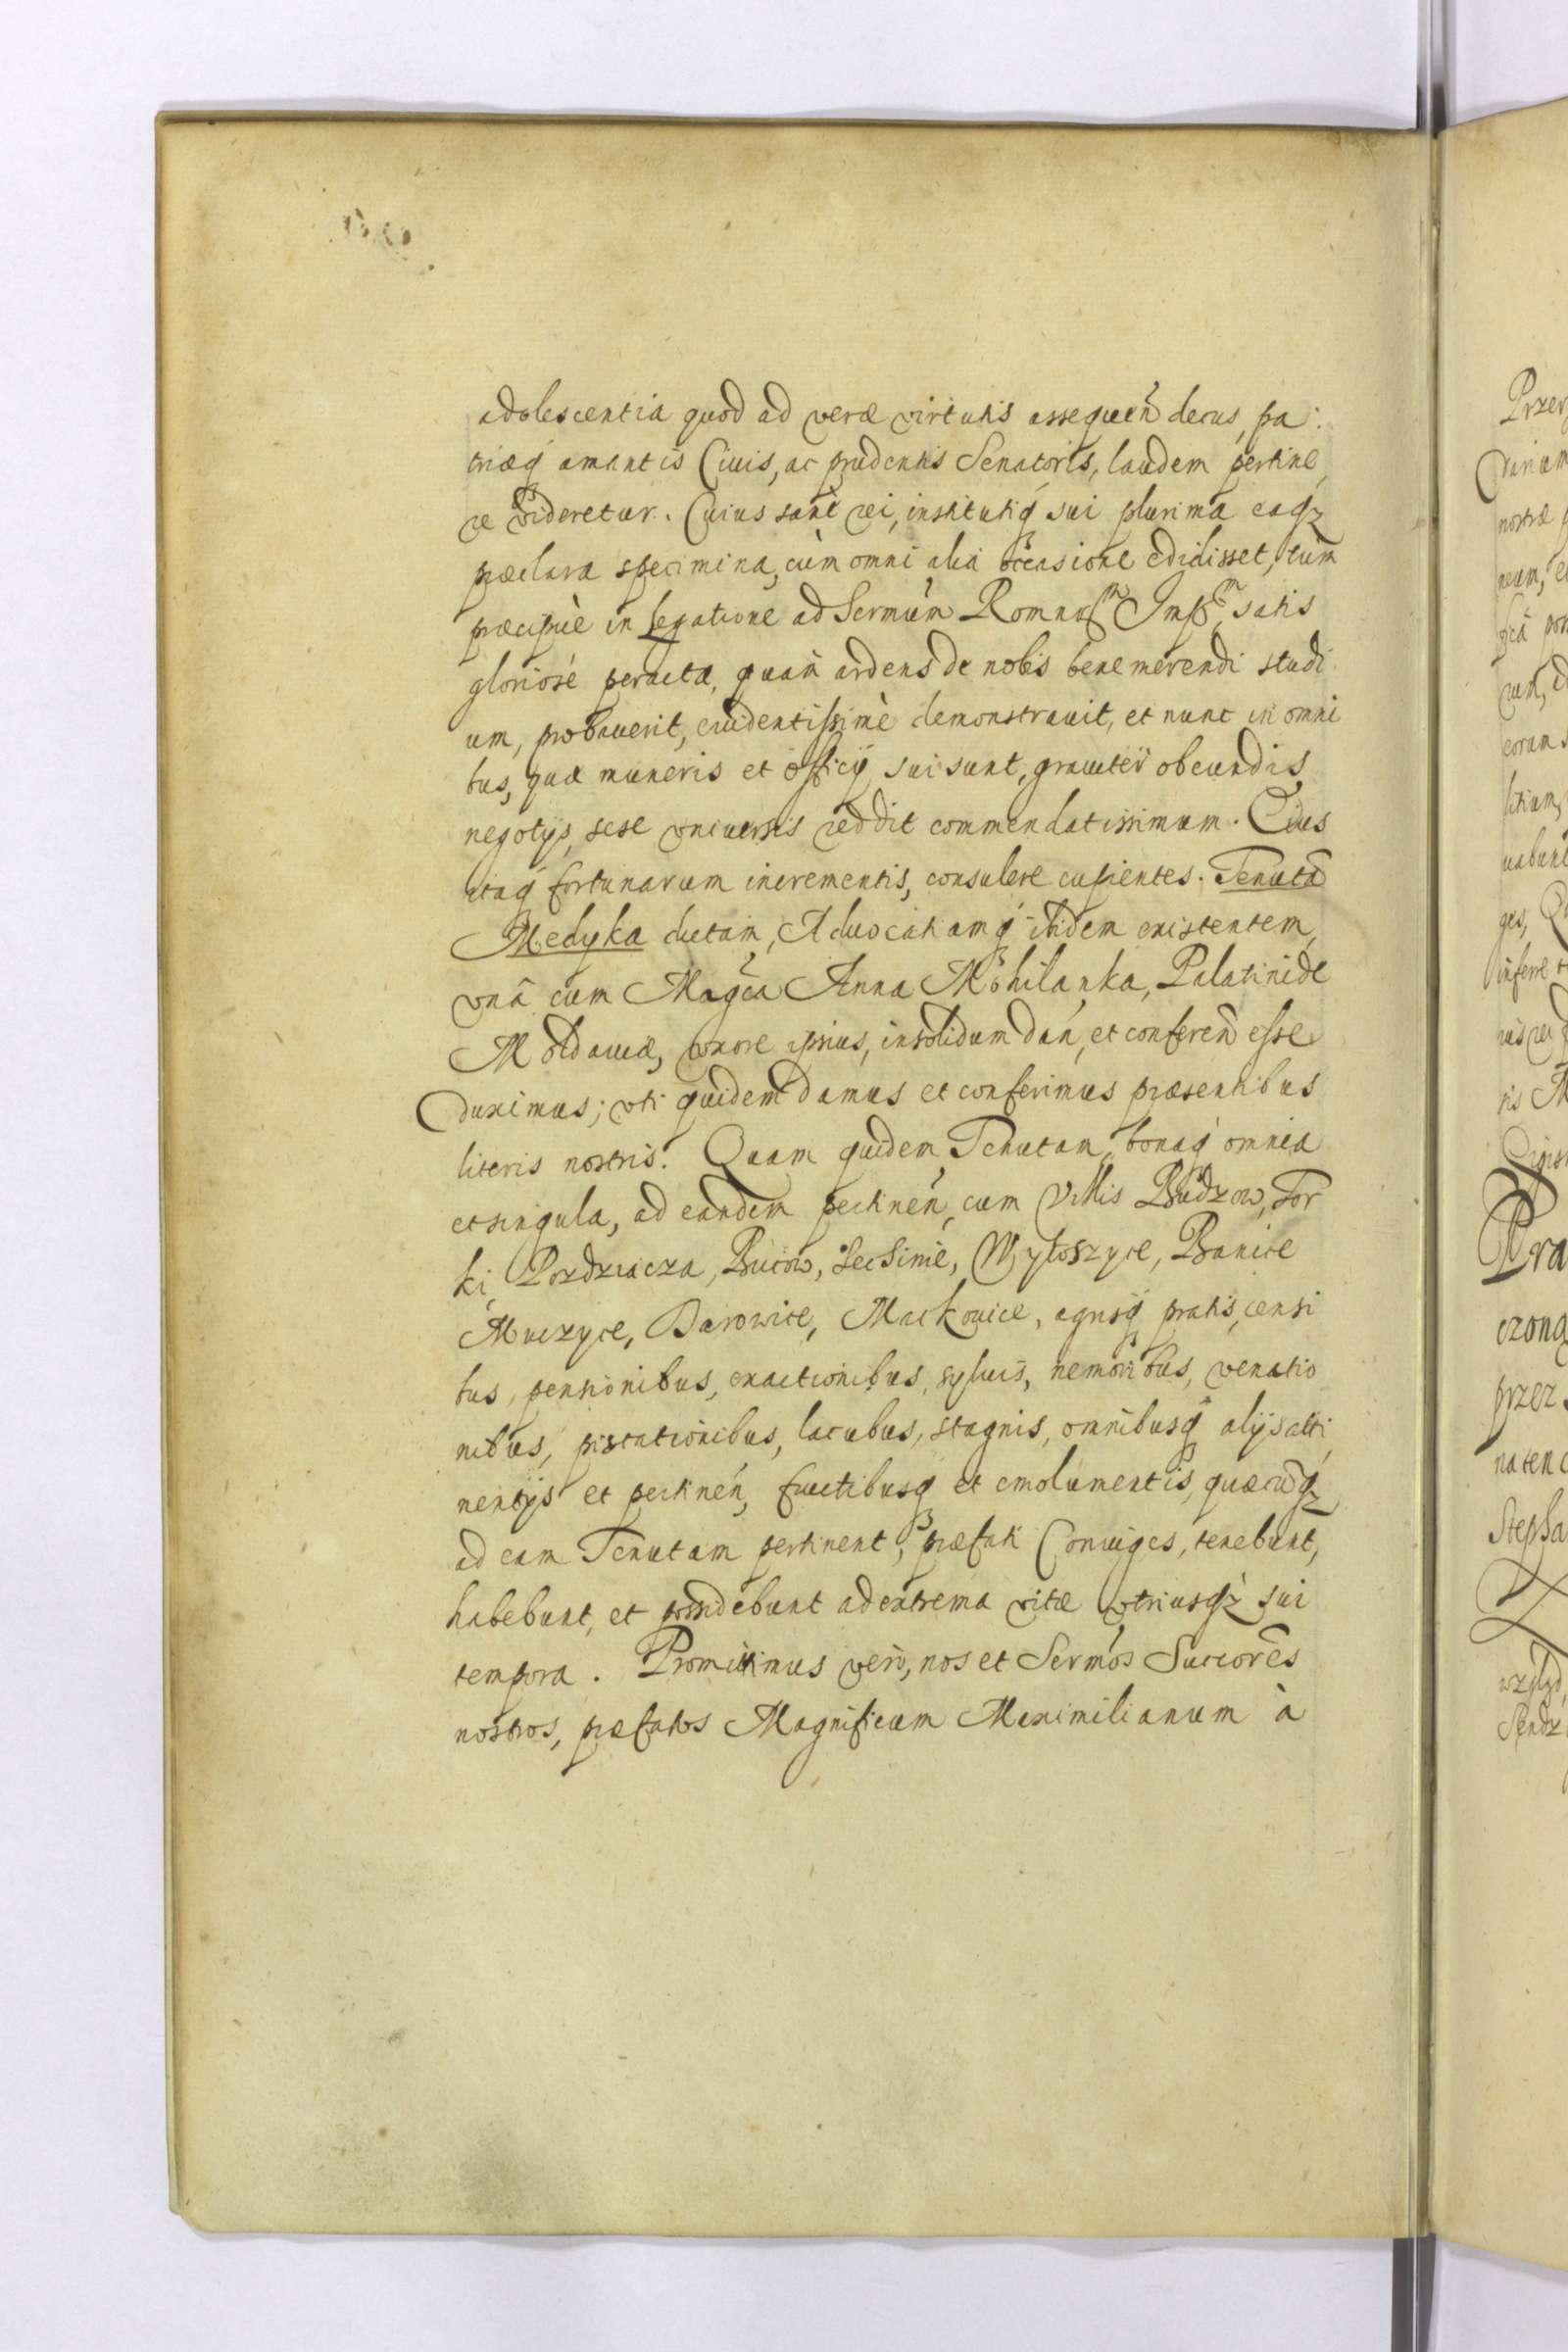 adolescentia quod ad veræ virtutis assequeñ decus, pa:
triæq́ amantis Ciuis, ac prudentis Senatoris, laudem pertine,
re videretur. Cuius sanè rei, institutiq́ sui plurima eaqꝫ
præclara specimina, cùm omni alia occasione edidisset, tùm
præcipuè in Legatione ad Sermum Romnorm Impm, satis
gloriosé peracta, quam ardens de nobis bene merendi studi
um, probauerit, euidentissimè demonstrauit, et nunc in omni
bus, quæ muneris et officij sui sunt, grauiter obeundis
negotijs, sese vniuersis reddit commendatissimum. Eius
itaq́ fortunarum incrementis, consulere cupientes. Tenutã
Medyka dictam, Aduocatiamq́ ibidem existentem,
vnâ cum Magca Anna Mohilanka, Palatinide
Moldauiæ, vxore ipsius, insolidum dań, et conferen̄ esse
duximus; vti quidem damus et conferimus præsentibus
literis nostris. Quam quidem Tenutam, bonaq́ omnia
et singula, ad eandem pertineń, cum Villis Budzow, Tor
ki, Pozdziacza, Bucow, Lecsinie, Wyłoszyce, Banice
Muczyce, Darowice, Mackouice, agrisq́ pratis, censi
bus, pensionibus, exactionibus, syluis, nemoribus, venatio
nibus, piscationibus, lacubus, stagnis, omnibusq́ alijs atti,
nentijs et pertineń, fructibusq́ et emolumentis, quæcũqꝫ
ad eam Tenutam pertinent, præfati Coniuges, tenebunt,
habebunt, et possidebunt ad extrema vitæ vtriusqꝫ sui
tempora. Promittimus verò, nos et Sermos Succores
nostros, præfatos Magnificum Maximilianum à